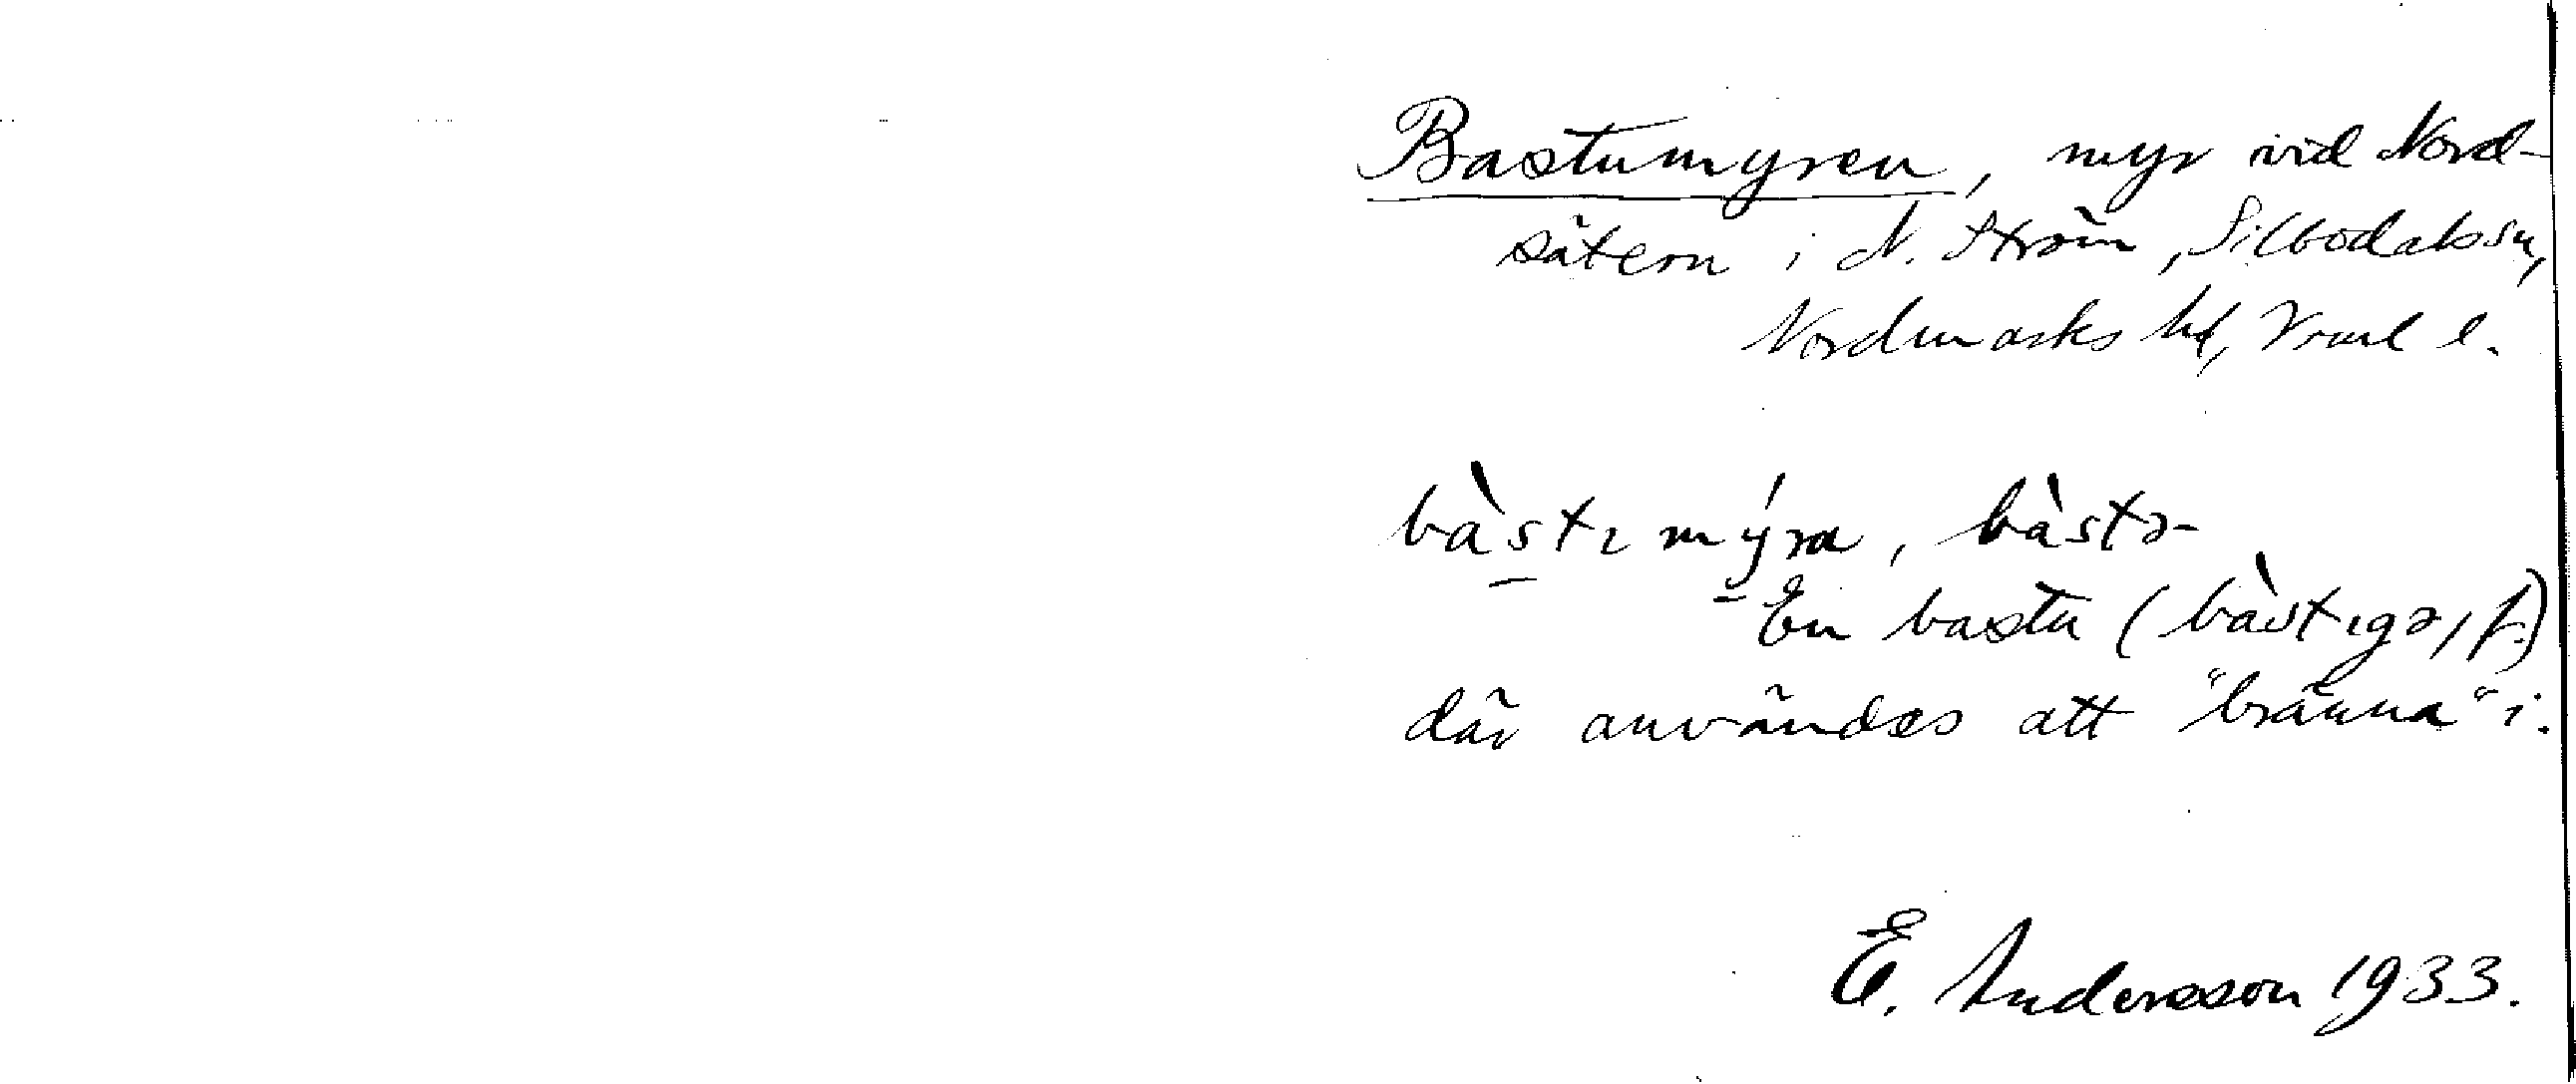 Bastumyren, myr vid Nord-
sätern i N. Ström, Silbodals sn,
Nordmarks hd, Vrml l.
bàstɿmýra, bàstə-
En bastu (bàstɿgə, f.)
där användes att "bränna" i.
E. Andersson 1933.